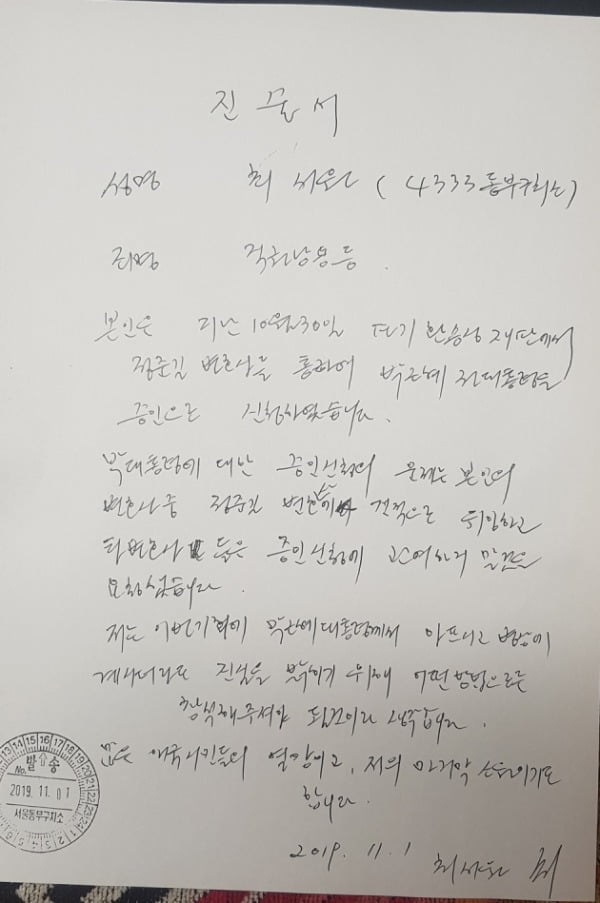 진술서
성명 최서원 (4333 동부구치소)
죄명 직권남용등.
본인은 지난 10월30일 파기환송심 재판에서
정준길 변호사를 통하여 박근혜 전대통령을
증인으로 신청하였습니다.
박대통령에 대한 증인신청의 문제는 본인의
변호사중 정준길 변호사에게 전적으로 위임하고
타변호사들은 증인신청에 관여하지 말것을
요청했습니다.
저는 이번기회에 박근혜대통령께서 아프시고 병상에
계시더라도 진실을 밝히기 위해 어떤 방법으로든
참석해주셔야 될것이라 생각합니다.
많은 애국시민들의 열망이고, 저의 마지막 소원이기도
합니다.
2019. 11. 1 최서원
발송
No.
2019. 11. 01
서울동부구치소